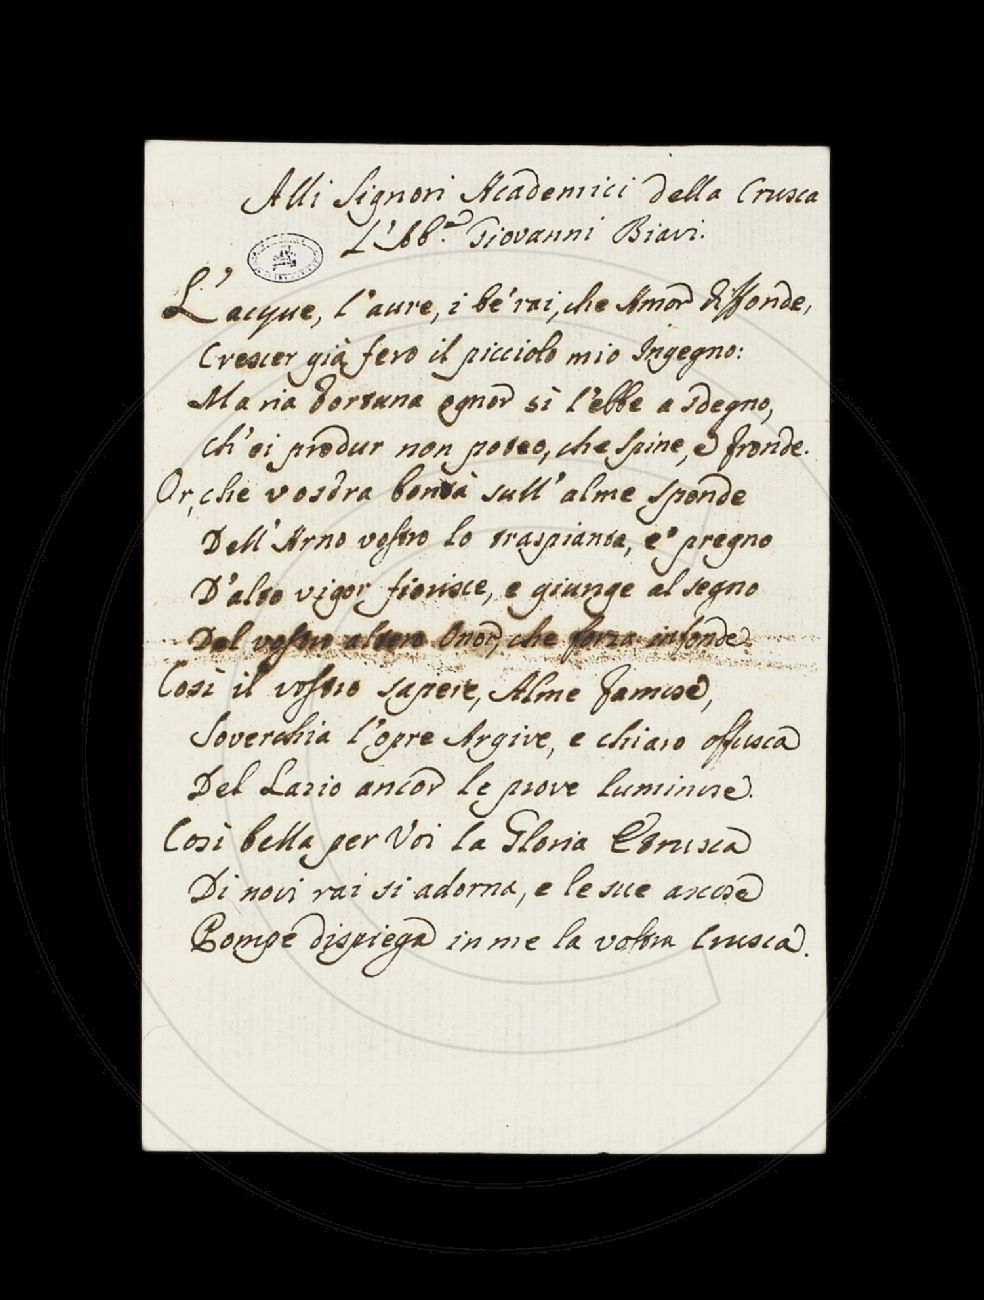 Alli Signori Academici della Crusca
L'Abb.e Giovanni Biavi.
L'acque, l'aure, i be' rai, che Amor diffonde,
Crescer già fero il picciolo mio Ingegno:
Ma ria Fortuna ognor sì l'ebbe a sdegno,
Ch'ei produr non poteo, che spine, e fronde.
Or, che vostra bontà sull'alme sponde
Dell'Arno vostro lo traspianta, e' pregno
D'alto vigor fiorisce, e giunge al segno
Del vostro altero Onor, che forza infonde.
Così il vostro sapere, Alme famose,
Soverchia l'opre Argive, e chiaro offusca
Del Lazio ancor le prove luminose.
Così bella per Voi la Gloria Etrusca
Di novi rai si adorna, e le sue ascose
Pompe dispiega in me la vostra Crusca.